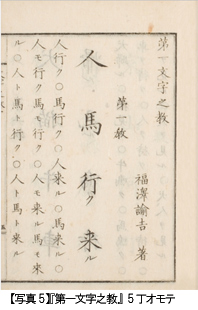 第一文字之教
福澤諭吉 著
第一教
人 馬 行ク 来ル
人行ク○馬行ク○人来ル○馬来ル○
人モ行ク馬モ行ク○人モ来ル馬モ來
ル○人ト馬ト行ク○人ト馬ト来ル
【写真5】『第一文字之教』5丁オモテ